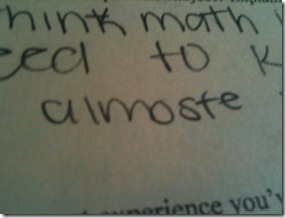 think math
eed to k
almoste
experience you'v